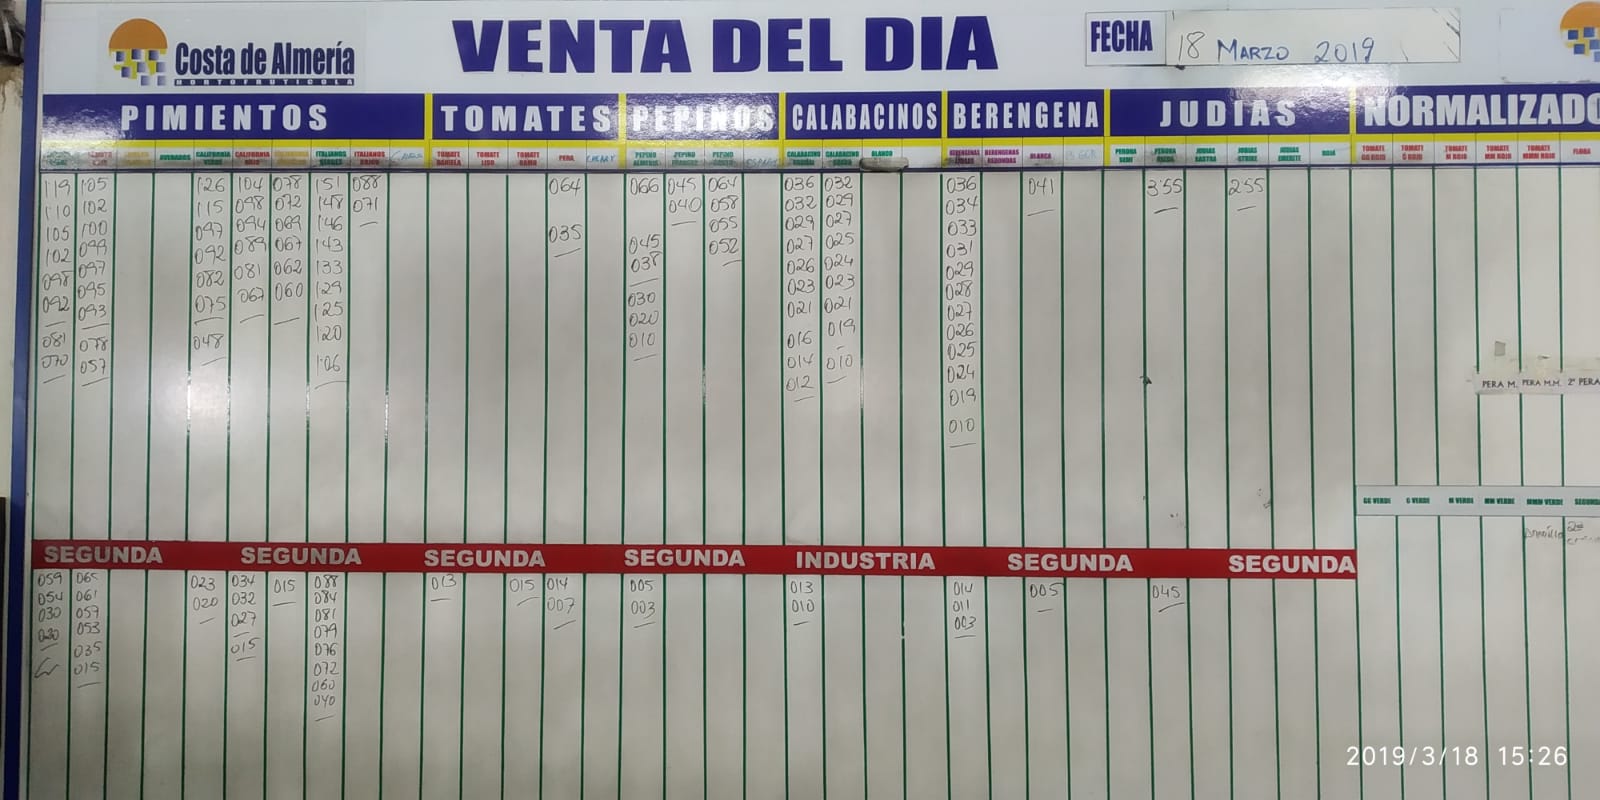 Costa de Almería
HORTOFRUTICOLA
VENTA DEL DIA
FECHA
18 MARZO 2019
PIMIENTOS TOMATES PEPINOS CALABACINOS BERENGENA JUDIAS NORMALIZADO
CALIFORNIA CALIFORNIA ITALIANOS ITALIANOS TOMATE TOMATE TOMATE PERA CHERRY PEPINO PEPINO PEPINO CALABACINO CALABACINO BLANCO BERENGENAS BERENGENAS BLANCA PERONA PERONA JUDIAS JUDIAS JUDIAS ROJA TOMATE TOMATE TOMATE TOMATE TOMATE FLORA
119 105 126 104 078 151 088 064 066 045 064 036 032 036 041 3'55 255
110 102 115 098 072 148 071 040 058 032 029 034
105 100 097 094 069 146 035 055 029 027 033
102 099 092 089 067 143 045 052 027 025 031
098 097 082 081 062 133 038 026 024 029
092 095 075 067 060 129 030 023 023 028
093 125 020 021 021 027
081 078 048 120 010 016 019 026
070 057 106 014 010 025
012 024
019
010
PERA M. PERA M.M. 2ª PERA
GG VERDE G VERDE M VERDE MM VERDE MMM VERDE SEGUNDA
SEGUNDA SEGUNDA SEGUNDA SEGUNDA INDUSTRIA SEGUNDA SEGUNDA
059 065 023 034 015 088 013 015 014 005 013 014 005 045
054 061 020 032 084 007 003 010 011
030 057 027 081 003
020 053 079
035 015 076
015 072
060
040
2019/3/18 15:26